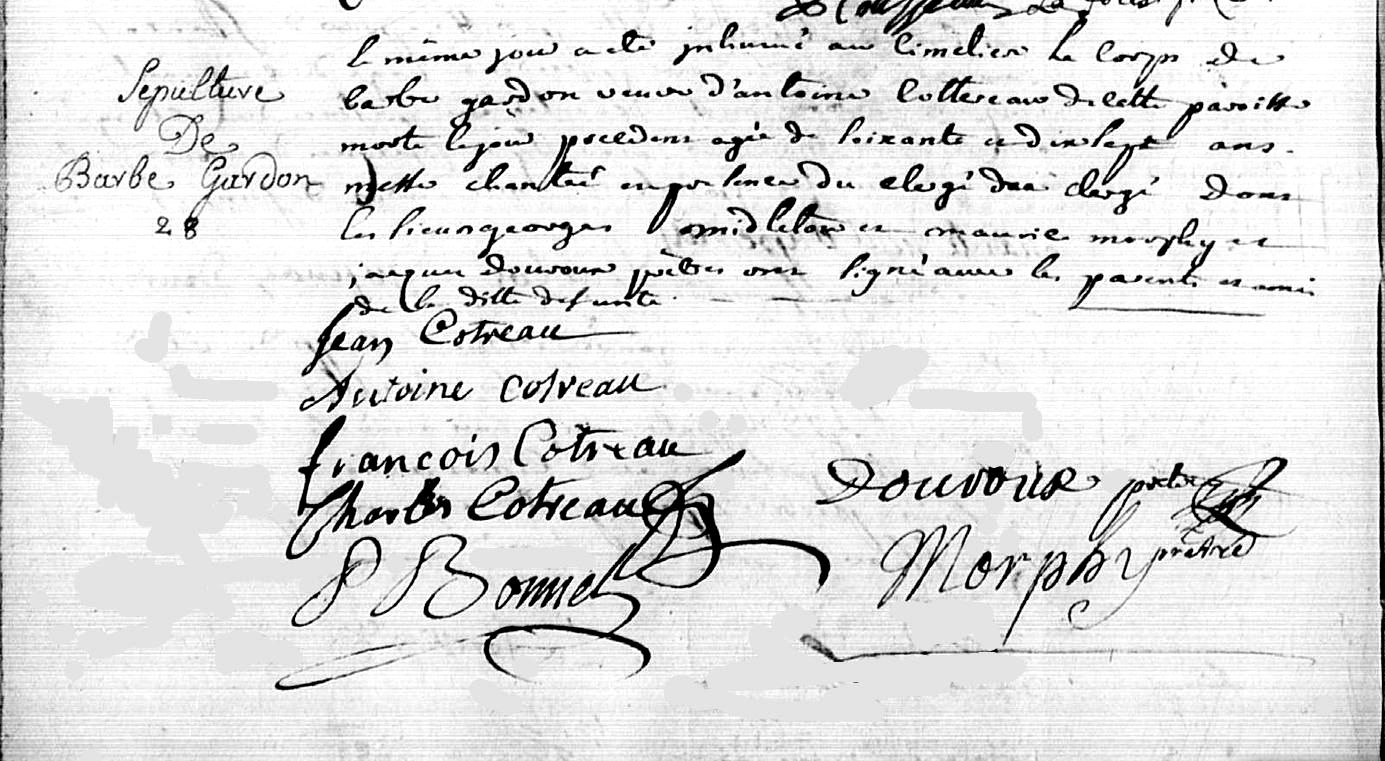 Sepulture
De
Barbe Gardon
28
le même jour a eté inhumé au Cimetiere le Corps de
barbe gardon veuve d'antoine Cottereau de cette paroisse
morte le jour precedent agée de soixante et dix sept ans.
messe chantée en presence du clergé du clergé Dont
les sieurs georges midleton et maurice morphy et
jacques douroux prêtres ont signé avec les parents et amis
de la ditte defunte.
Jean Cotreau
Antoine Cotreau
francois Cotreau
Charles Cotreau
Douroux prêtre
P Bonnet
Morphy prêtre